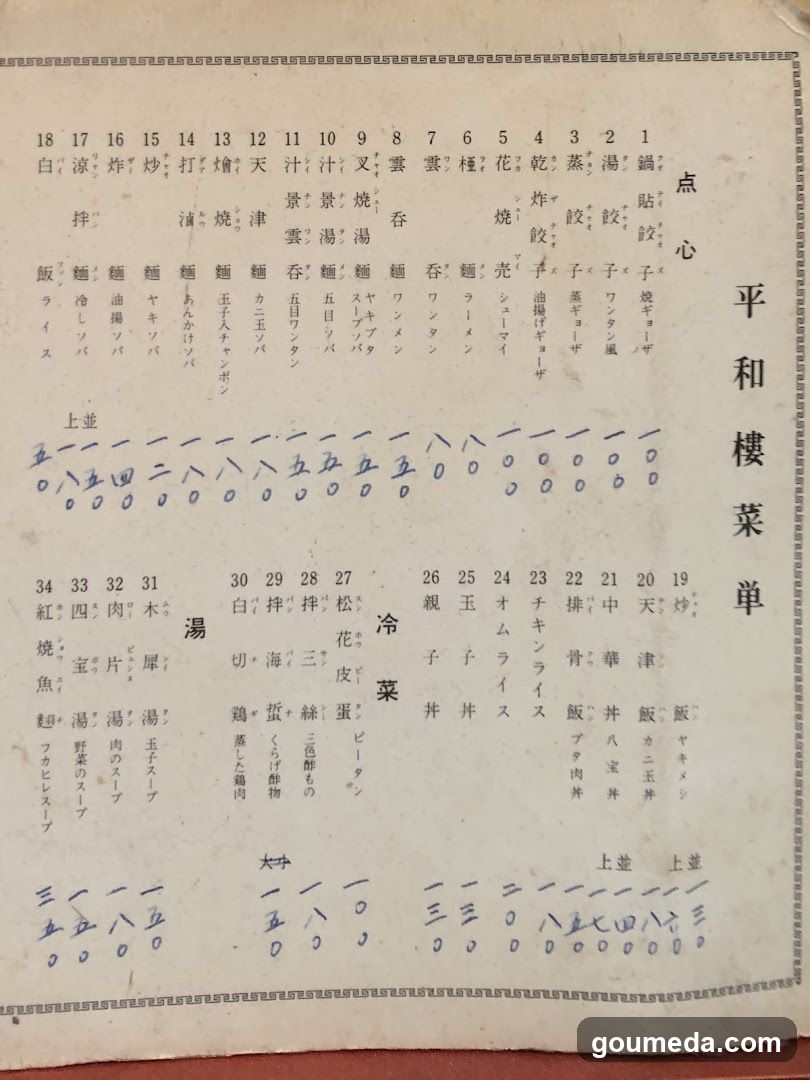 平和樓菜単
点心
1 鍋貼餃子 焼ギョーザ 一〇〇
2 湯餃子 ワンタン風 一〇〇
3 蒸餃子 蒸ギョーザ 一〇〇
4 乾炸餃子 油揚げギョーザ 一〇〇
5 花焼売 シューマイ 一〇〇
6 麺 ラーメン 八〇
7 雲呑 ワンタン 八〇
8 雲呑麺 ワンメン 一五〇
9 叉焼湯麺 ヤキブタスープソバ 一五〇
10 汁景湯麺 五目ソバ 一五〇
11 汁景雲呑 五目ワンタン 一五〇
12 天津麺 カニ玉ソバ 一八〇
13 燴焼麺 玉子入チャンポン 一八〇
14 打滷麺 あんかけソバ 一八〇
15 炒麺 ヤキソバ 一二〇
16 炸麺 油揚ソバ 一四〇
17 涼拌麺 冷しソバ 並 一五〇 上 一八〇
18 白飯 ライス 五〇
19 炒飯 ヤキメシ 並 一三〇 上 一六〇
20 天津飯 カニ玉丼 一八〇
21 中華丼 八宝丼 並 一四〇 上 一七〇
22 排骨飯 ブタ肉丼 一五〇
23 チキンライス 一八〇
24 オムライス 二〇〇
25 玉子丼 一三〇
26 親子丼 一三〇
冷菜
27 松花皮蛋 ピータン 一〇〇
28 拌三絲 三色酢もの 一八〇
29 拌海蜇 くらげ酢物 一五〇
30 白切鶏 蒸した鶏肉
湯
31 木犀湯 玉子スープ 一五〇
32 肉片湯 肉のスープ 一八〇
33 四宝湯 野菜のスープ 一五〇
34 紅焼魚翅 フカヒレスープ 三五〇
goumeda.com